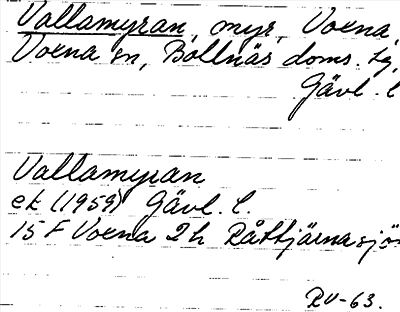 Vallamyran, myr, Voxna,
Voxna sn, Bollnäs doms. sg,
Gävl. l
Vallamyran
ek (1959) Gävl. l.
15 F Voxna 2 h Råttjärnasjö
RV-63.